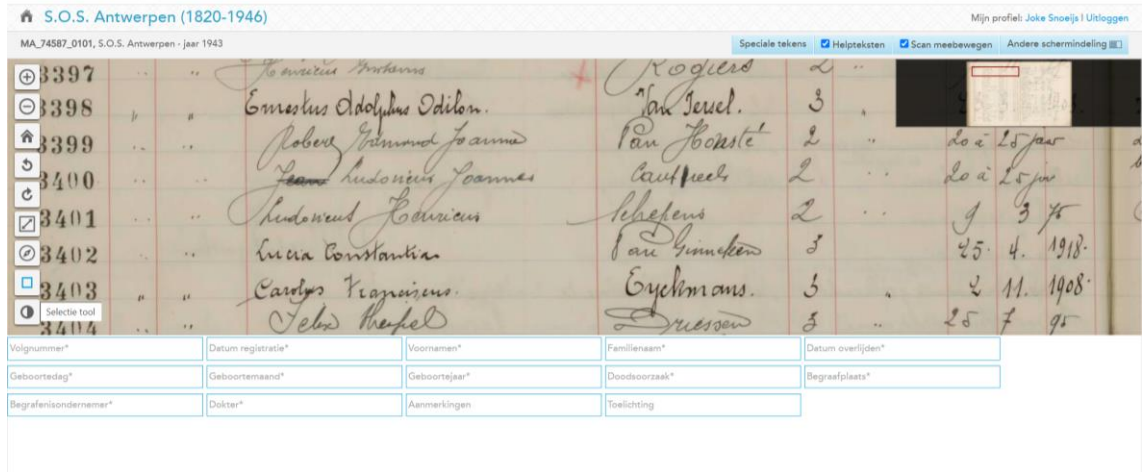 S.O.S. Antwerpen (1820-1946)
Mijn profiel: Joke Snoeijs | Uitloggen
MA_74587_0101, S.O.S. Antwerpen - jaar 1943
Speciale tekens Helpteksten Scan meebewegen Andere schermindeling
3397 " Henricus Gustavus Rogiers 2 "
3398 " " Ernestus Adolphus Odilon. Van Iersel. 3 "
3399 " " Robert Edmond Joannes Van Houste 2 " 20 à 25 jaar
3400 " " Jean Ludovicus Joannes 2 " 20 à 25 jar
3401 " " Ludovicus Henricus Schepens 2 " 9 3 75
3402 " Lucia Constantia Van Ginneken 3 25. 4. 1918.
3403 " " Carolus Franciscus. Eyckmans. 3 " 2 11. 1908.
3404 " " Felix Driessen 3 " 28 7 95
Selectie tool
Volgnummer* Datum registratie* Voornamen* Familienaam* Datum overlijden*
Geboortedag* Geboortemaand* Geboortejaar* Doodsoorzaak* Begraafplaats*
Begrafenisondernemer* Dokter* Aanmerkingen Toelichting